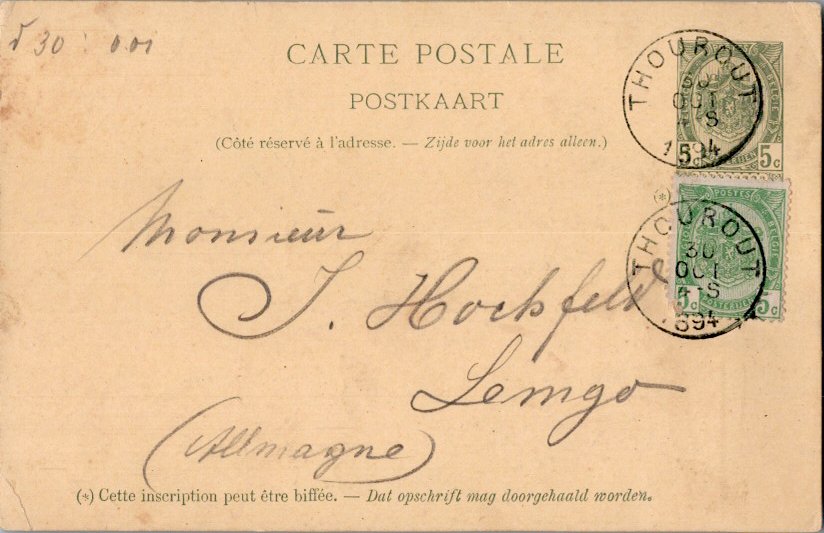 30 : 0.01
CARTE POSTALE
POSTKAART
(Côté réservé à l'adresse. — Zijde voor het adres alleen.)
THOUROUT
30
OCT
4-S
1894
5c 5c
(*)
POSTES
THOUROUT
30
OCT
4-S
1894
5c POSTERIJEN 5c
Monsieur
J. Hochfeld
Lemgo
(Allemagne)
(*) Cette inscription peut être biffée. — Dat opschrift mag doorgehaald worden.